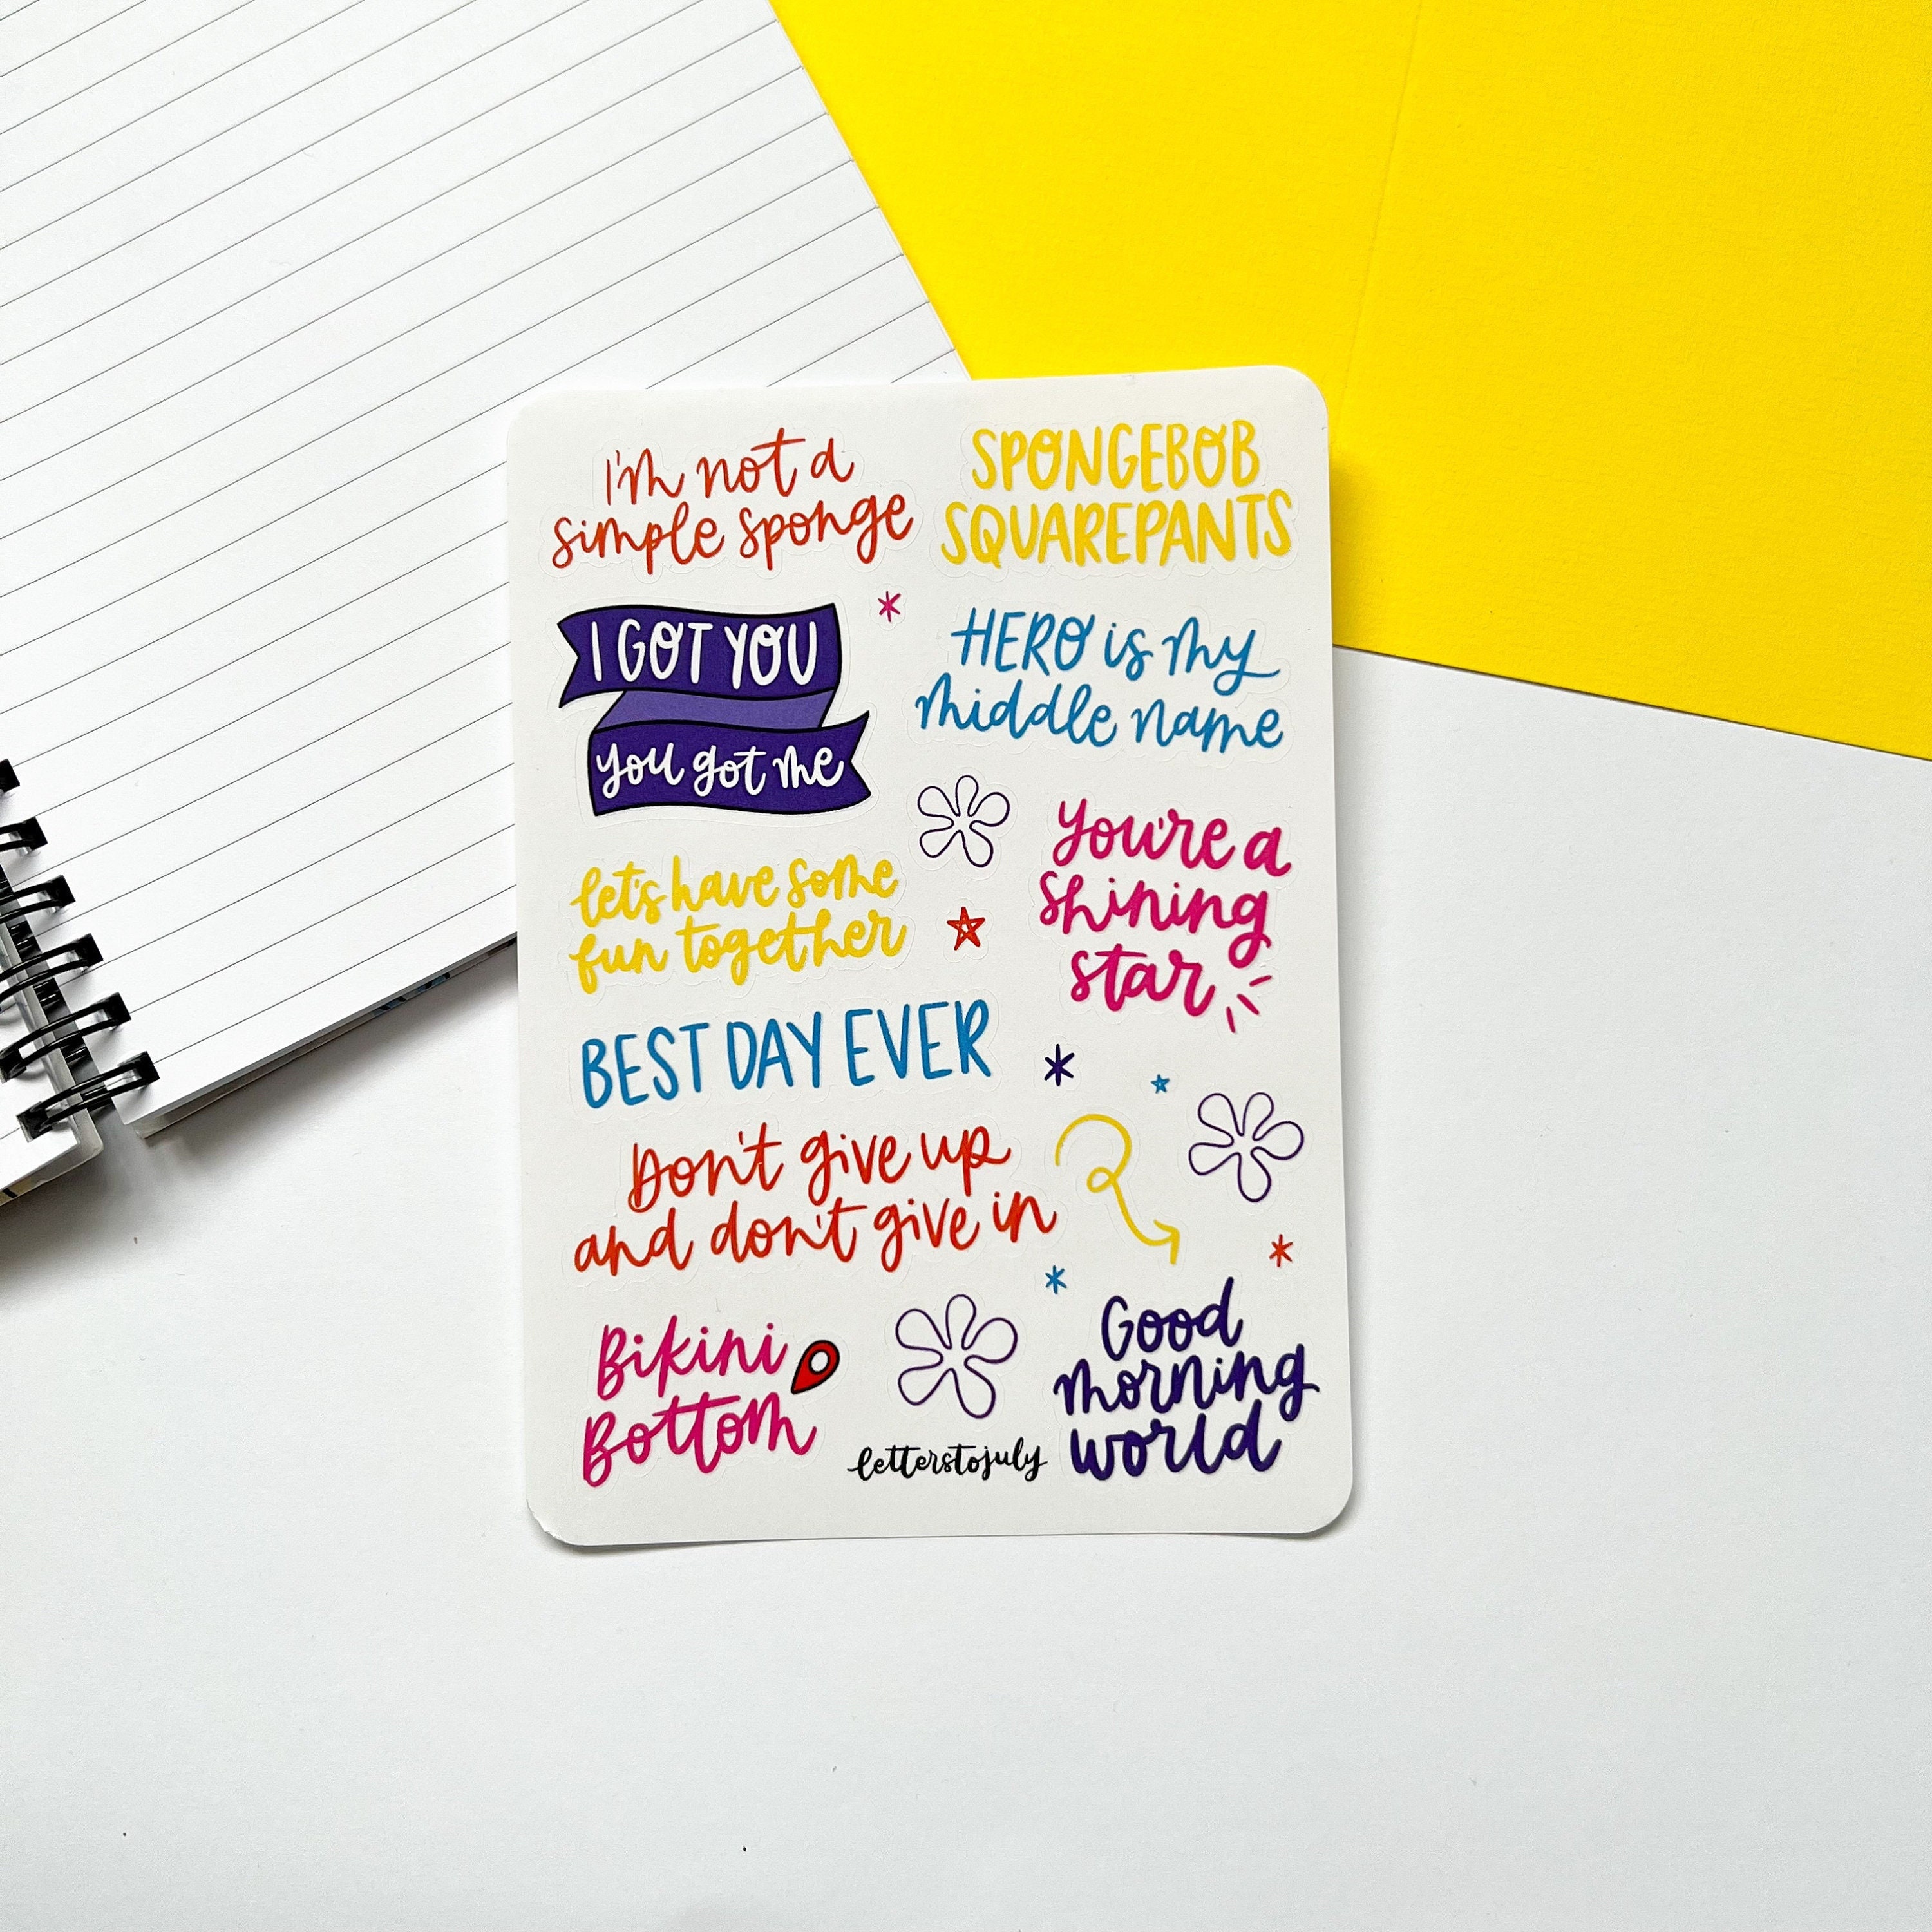 I'm not a
simple sponge
SPONGEBOB
SQUAREPANTS
I GOT YOU
you got me
HERO is my
middle name
let's have some
fun together
you're a
shining
star
BEST DAY EVER
Don't give up
and don't give in
Bikini
Bottom
letterstojuly
Good
morning
world